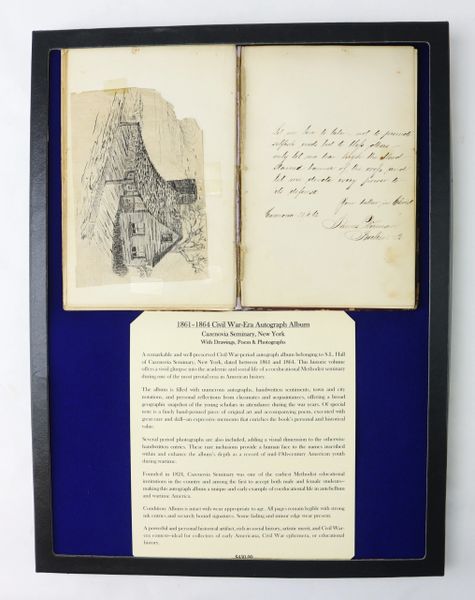 Let us live to labor not to promote
selfish ends but to bless others
only let us
banner of the cross and
let us devote every power to
its defense
Your sister in Christ
Cazenovia
1861–1864 Civil War-Era Autograph Album
Cazenovia Seminary, New York
With Drawings, Poem & Photographs
A remarkable and well-preserved Civil War-period autograph album belonging to S.L. Hall
of Cazenovia Seminary, New York, dated between 1861 and 1864. This historic volume
offers a vivid glimpse into the academic and social life of a coeducational Methodist seminary
during one of the most pivotal eras in American history.
The album is filled with numerous autographs, handwritten sentiments, town and city
notations, and personal reflections from classmates and acquaintances, offering a broad
geographic snapshot of the young scholars in attendance during the war years. Of special
note is a finely hand-penned piece of original art and accompanying poem, executed with
great care and skill—an expressive memento that enriches the book's personal and historical
value.
Several period photographs are also included, adding a visual dimension to the otherwise
handwritten entries. These rare inclusions provide a human face to the names inscribed
within and enhance the album's depth as a record of mid-19th-century American youth
during wartime.
Founded in 1824, Cazenovia Seminary was one of the earliest Methodist educational
institutions in the country and among the first to accept both male and female students—
making this autograph album a unique and early example of coeducational life in antebellum
and wartime America.
Condition: Album is intact with wear appropriate to age. All pages remain legible with strong
ink entries and securely bound signatures. Some fading and minor edge wear present.
A powerful and personal historical artifact, rich in social history, artistic merit, and Civil War-
era context—ideal for collectors of early Americana, Civil War ephemera, or educational
history.